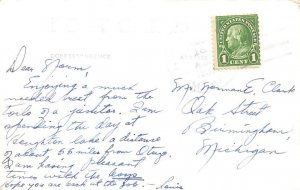 CORRESPONDENCE
UNITED STATES POSTAGE
1 CENT 1
Dear Norm,
Enjoying a much
needed rest from the
toils of a janitor. I am
spending the day at
Houghton Lake a distance
of about 66 miles from
I am having pleasant
times with the boys
Hope you are back at the job. —
Mr. Norman E. Clark
Oak Street
Birmingham,
Michigan